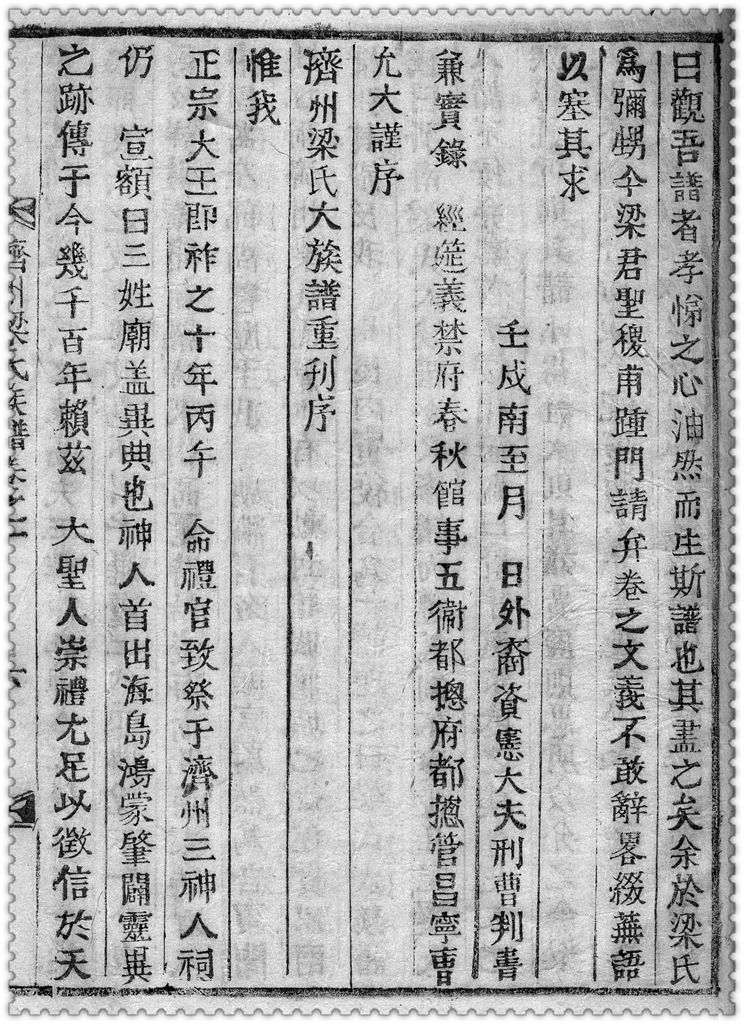 曰觀吾譜者孝悌之心油然而生斯譜也其盡之矣余於梁氏
爲彌甥今梁君聖稷甫踵門請弁卷之文義不敢辭畧綴蕪語
以塞其求
壬戍南至月 日外裔資憲大夫刑曹判書
兼實錄 經筵義禁府春秋館事五衛都摠府都摠管昌寧曺
允大謹序
濟州梁氏大族譜重刊序
惟我
正宗大王卽祚之十年丙午 命禮官致祭于濟州三神人祠
仍 宣額曰三姓廟盖異典也神人首出海島鴻蒙肇闢靈異
之跡傳于今幾千百年賴玆 大聖人崇禮尤足以徵信於天
濟州梁氏族譜卷之一